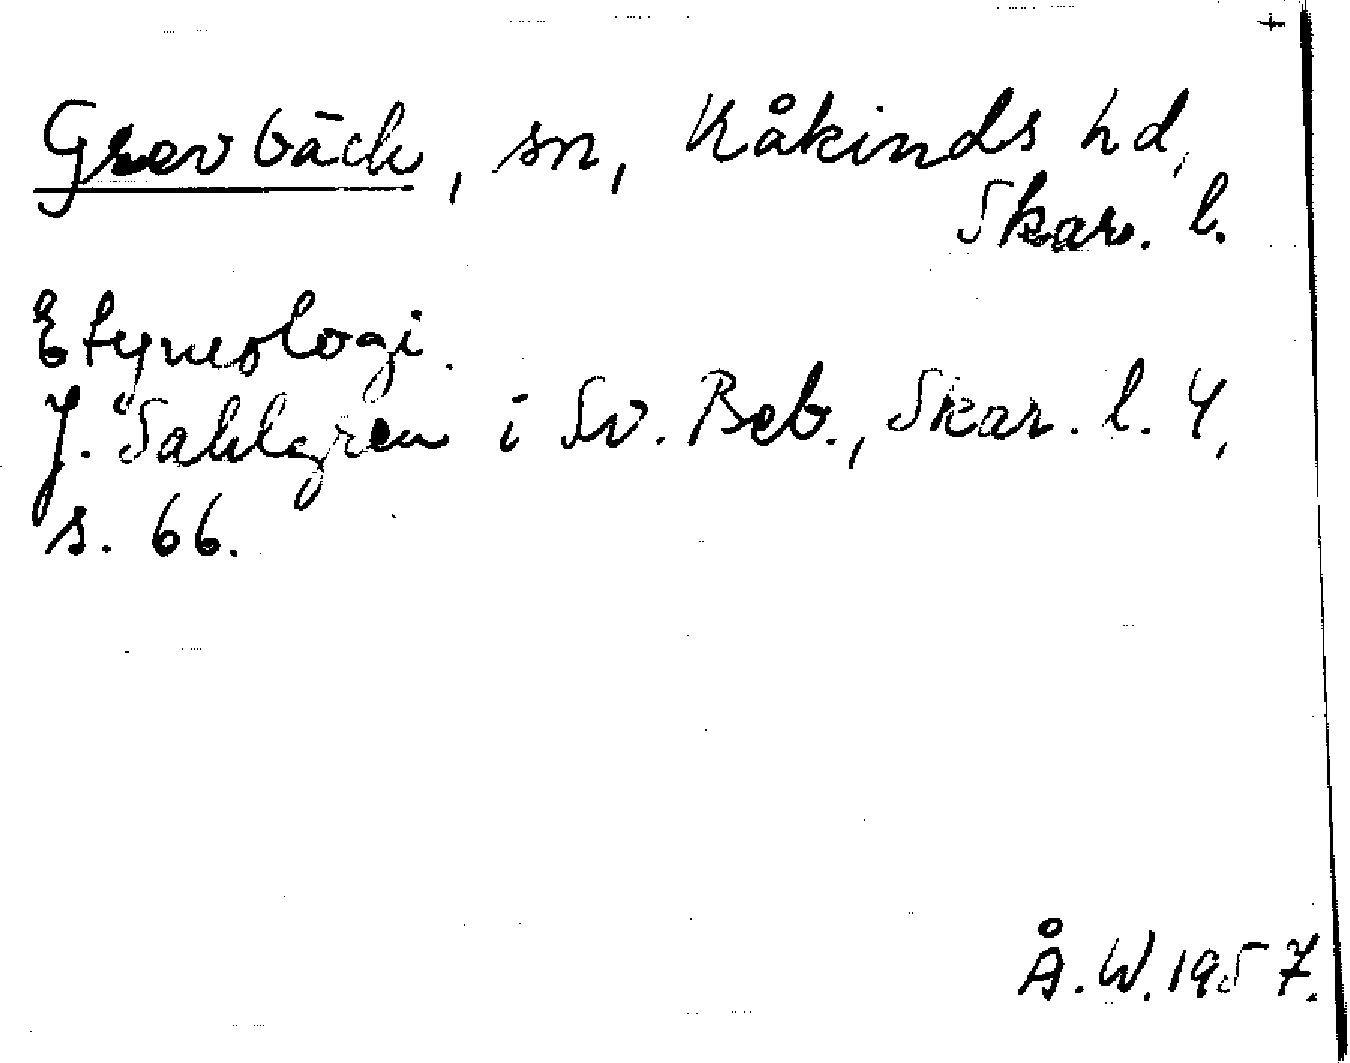 +
Grevbäck, sn, Kåkinds hd,
Skar. l.
Etymologi.
J. Sahlgren i Sv. Beb., Skar. l. 4,
s. 66.
Å. W. 1957.